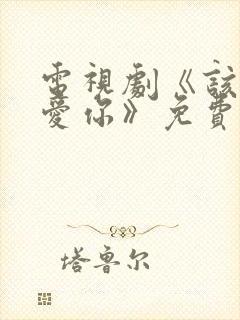 電視劇《該
愛你》免費
塔鲁尔